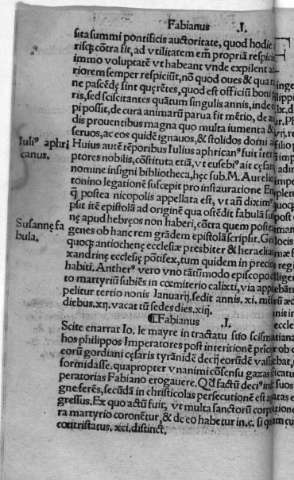 Fabianus I.
sita summi pontificis auctoritate, quod hodie
risqȝ cōtra sit, ad vtilitatem em̄ propriā respici
immo voluptatē vt habeant vnde expilent a
riorem semper respiciūt, nō quod oues & qua
ne pascēdę sint quęrētes, quod est officiū boni
ris, sed sciscitantes quātum singulis annis, inde
pi possit, de cura animarū parua fit mētio, de a
dis prouentibus magna quo multa iumenta &
seruos, ac eos quidē ignauos, & stolidos domi a
Iuliꝰ aphri
canus.
Huius autē tēporibus Iulius aphricanꝰ fuit
ptores nobilis, cōstituta etiā, vt eusebiꝰ ait
nomine insigni bibliotheca, hęc sub M. Aurelio
tonino legationē suscepit pro instauratione
q̄ postea nicopolis appellata est, vt an̄ diximꝰ
plit itē epistolā ad originē qua osēdit fabulā
Susannę fa
busa,
nę apud hebręos non haberi, cōtra quem postea
genes ob hanc rem grādem epistolā scripsit.
quoqȝ antiochenę ecclesiæ presbiter & heraclea
xandrinę ecclesię pōtifex, tum quidem in precio
habiti. Antherꝰ vero vno tātūmodo episcopo
to martyriū subiēs in cœmiterio calixti, via appia
pelitur tertio nonis Ianuarij. sedit annis. xi. mī
diebus. xij. vacat tū sedes dies. xiij.
¶Fabianus I.
Scite enarrat Io, le mayre in tractatu suo scismat
hos philippos Imperatores post interitionē
eorū gordiani cęsaris tyrānidē decij eorūdē va
formidasse. quapropter vnanimi cōsensu gazas
peratorias Fabiano erogauere. Qd̄ factū deciꝰ
gne ferēs, sęcūdā in christicolas persecutionē est a
gressus. Ex quo actū fuit, vt multa sanctorū corpo
ra martyrio coronētur, & de eo habetur in. c. si quam
cōtristatus. xci. distinct.